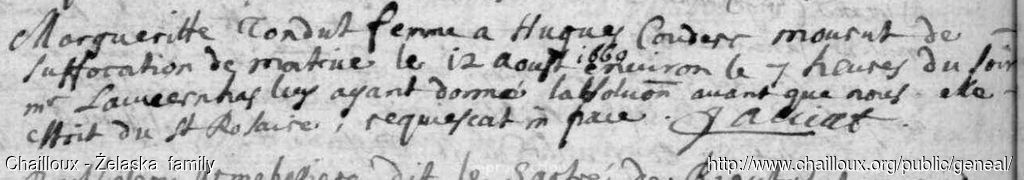 Margueritte Tondut femme a Hugues Couderc mourut de
suffocation de matrice le 12 Aoust 1660 environ le 7 heures du soir
mr Lauvernhas luy ayant donné labsoluõn avant que nous. elle
estoit du St Rosaire, requiescat in pace.
dit le
Chailloux - Żelaska family
http://www.chailloux.org/public/geneal/